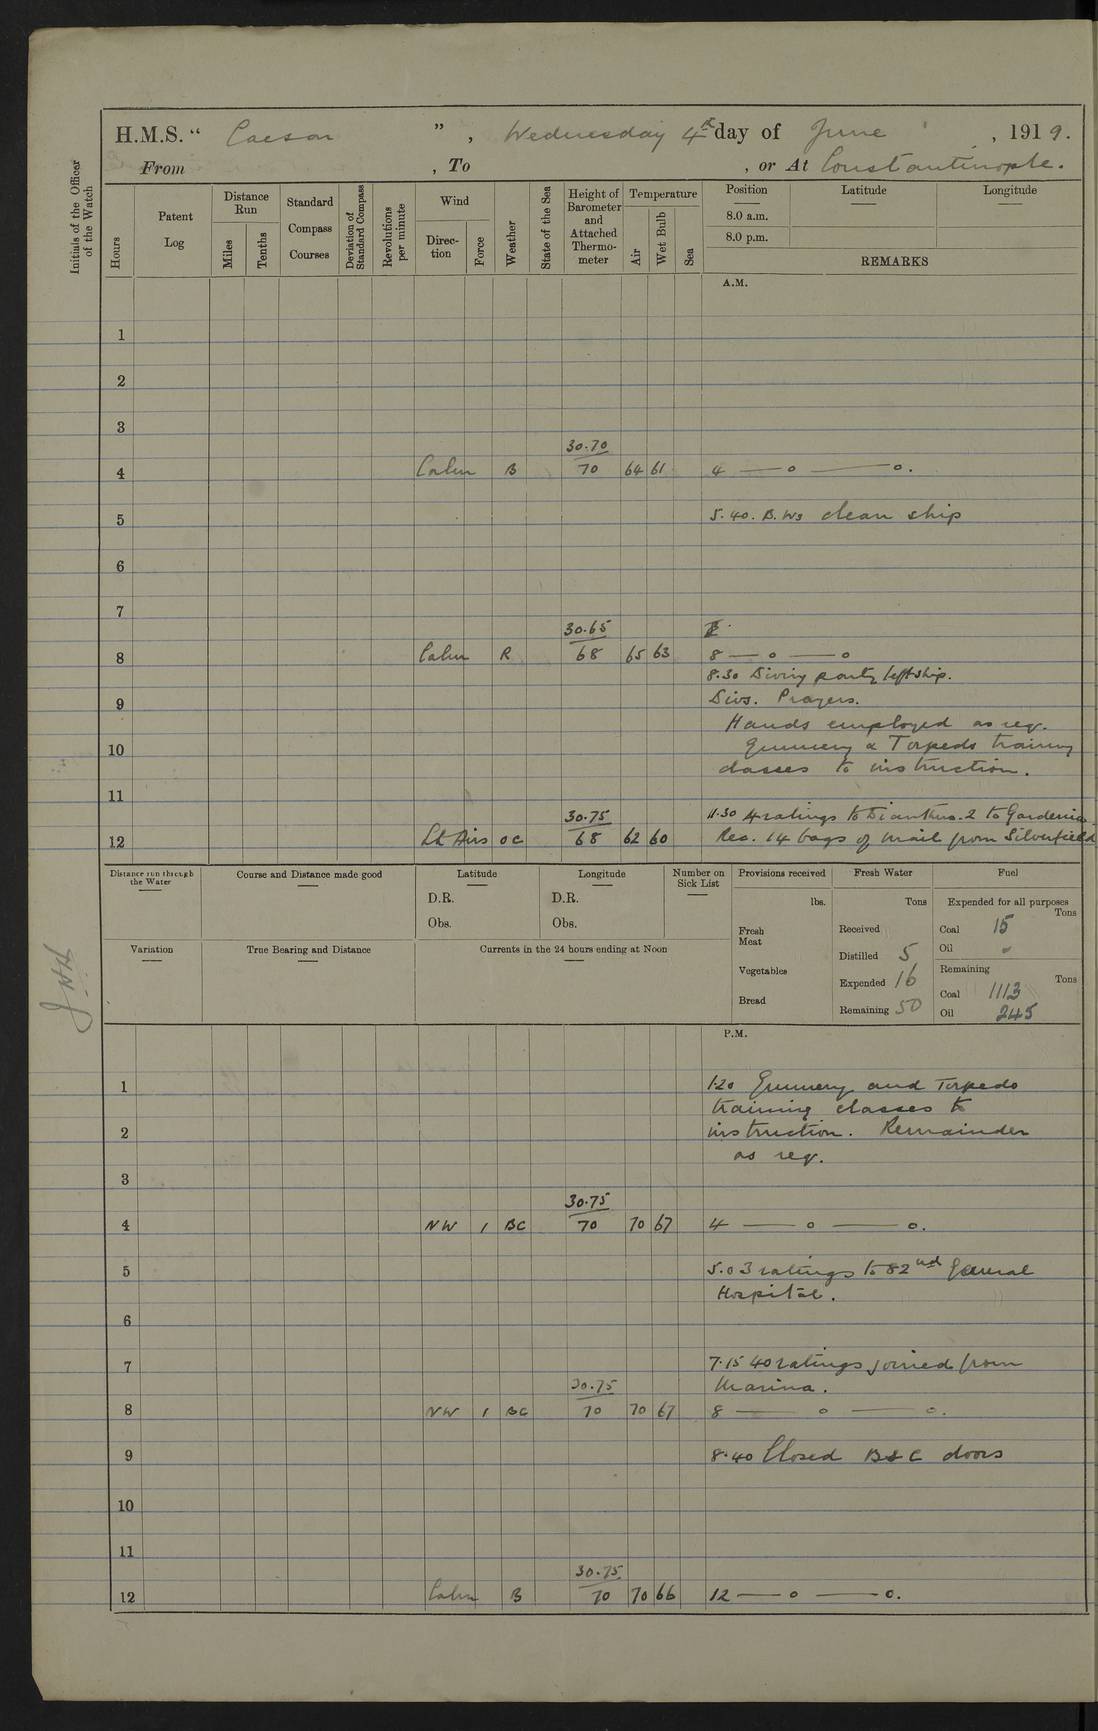 H.M.S. " Caesar ", Wednesday 4th day of June, 1919.
From , To , or At Constantinople.
Initials of the Officer of the Watch
Hours
Patent Log
Distance Run
Miles
Tenths
Standard Compass Courses
Deviation of Standard Compass
Revolutions per minute
Wind
Direction
Force
Weather
State of the Sea
Height of Barometer and Attached Thermometer
Temperature
Air
Wet Bulb
Sea
Position Latitude Longitude
8.0 a.m.
8.0 p.m.
REMARKS
A.M.
1
2
3
30.70
4 Calm B 70 64 61 4 — o — o.
5 5.40. B.Ws clean ship
6
7
30.65
8 Calm R 68 65 63 8 — o — o
8.30 Diving party left ship.
9 Divs. Prayers.
Hands employed as req.
10 Gunnery & Torpedo training
classes to instruction.
11
30.75 11.30 4 ratings to Dianthus. 2 to Gardenia.
12 Lt Airs oc 68 62 60 Rec. 14 bags of mail from Silverfield
Distance run through the Water
Course and Distance made good
Latitude
D.R.
Obs.
Longitude
D.R.
Obs.
Number on Sick List
Provisions received
lbs.
Fresh Meat
Vegetables
Bread
Fresh Water
Tons
Received
Distilled 5
Expended 16
Remaining 50
Fuel
Expended for all purposes
Tons
Coal 15
Oil -
Remaining
Tons
Coal 1113
Oil 245
Variation
True Bearing and Distance
Currents in the 24 hours ending at Noon
P.M.
1 1.20 Gunnery and Torpedo
training classes to
2 instruction. Remainder
as req.
3
30.75
4 NW 1 BC 70 70 67 4 — o — o.
5 5.0 3 ratings to 82nd General
Hospital.
6
7 7.15 40 ratings joined from
30.75 Marina.
8 NW 1 BC 70 70 67 8 — o — o.
9 8.40 Closed B & C doors
10
11
30.75
12 Calm B 70 70 66 12 — o — o.